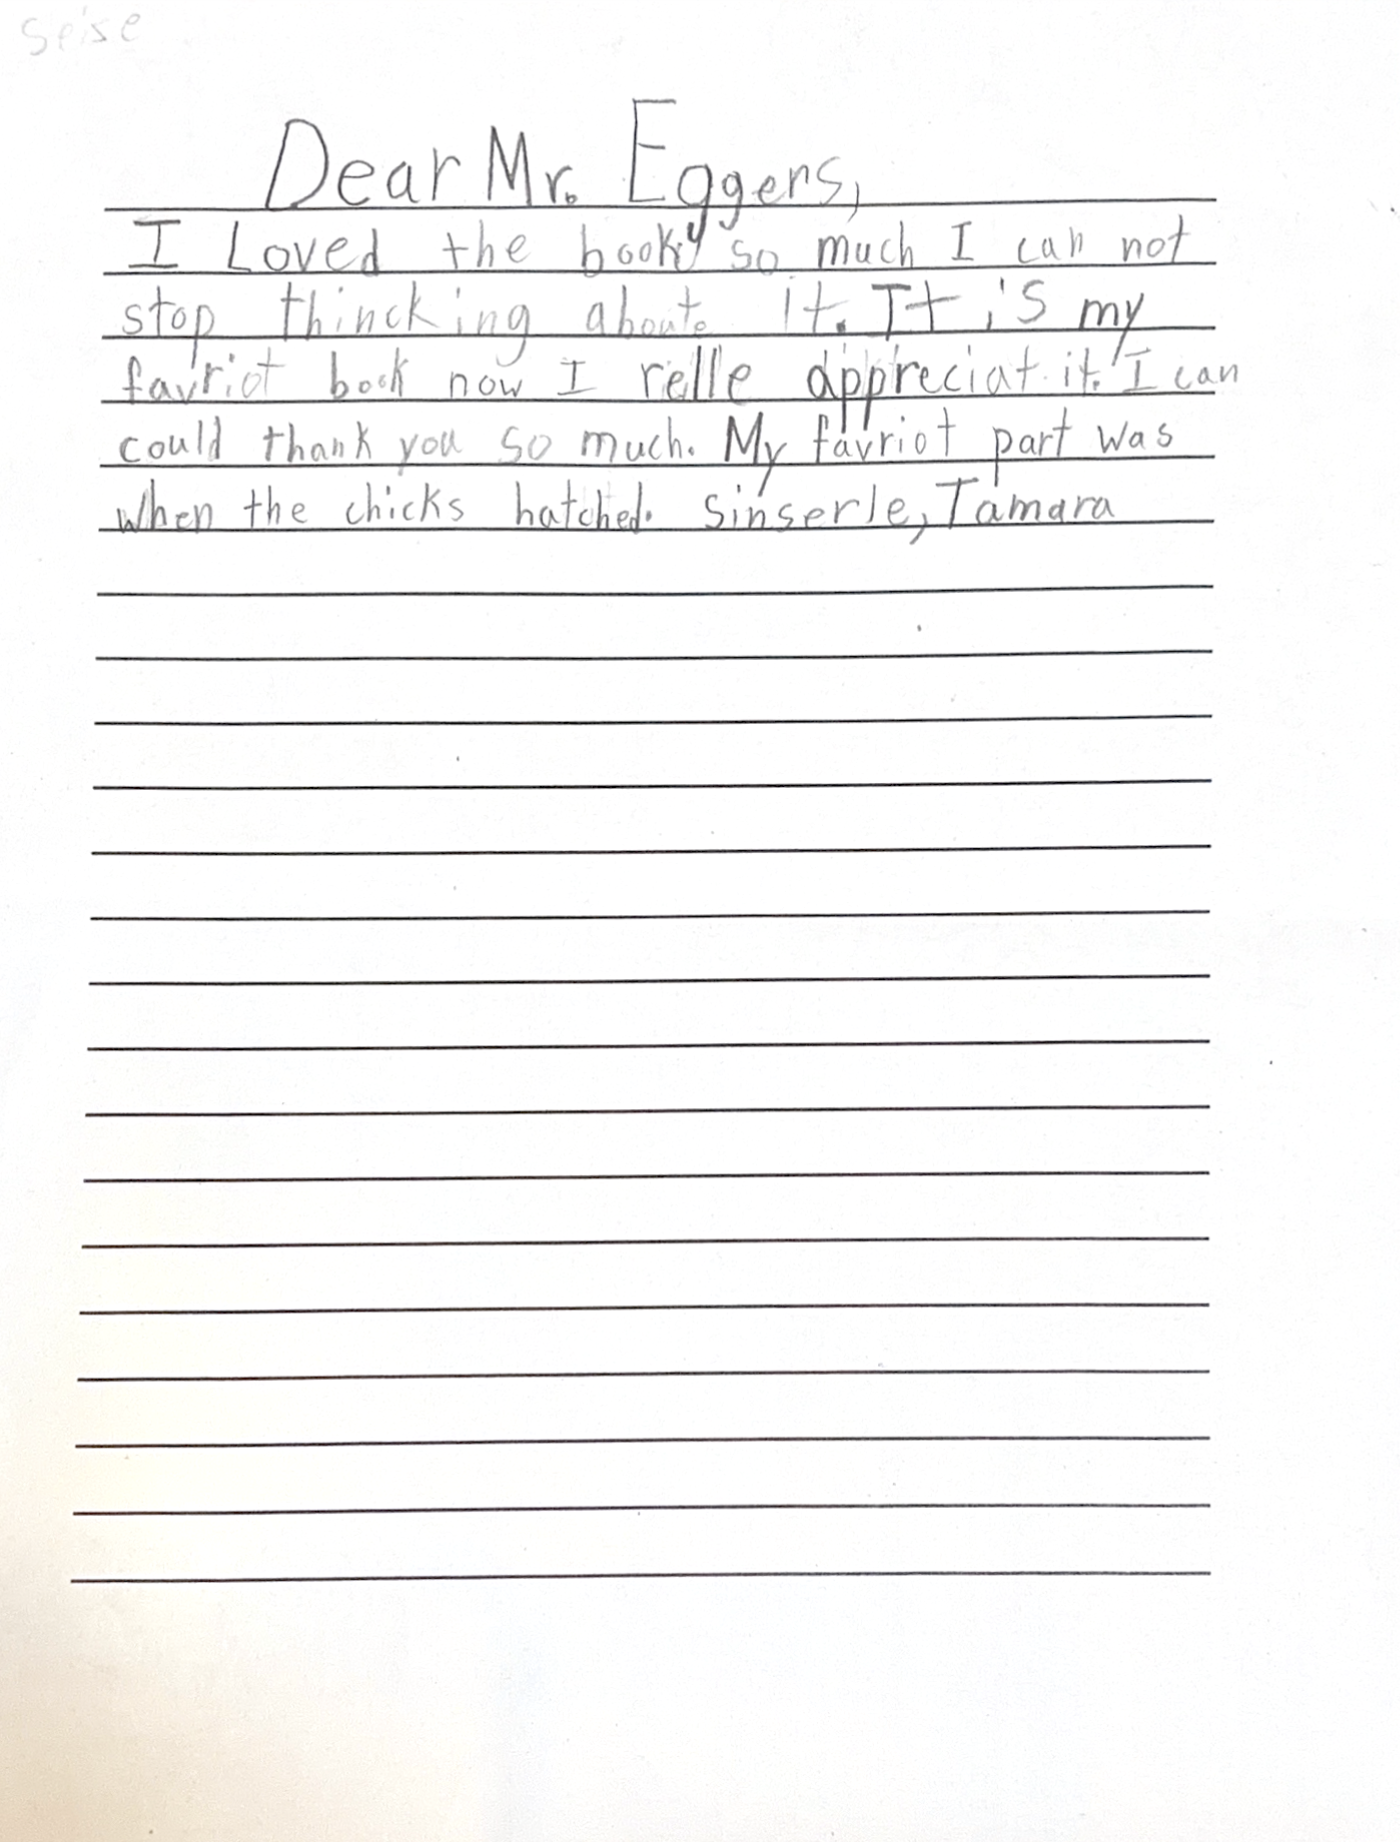 Dear Mr. Eggers,
I Loved the book so much I can not
stop thincking about. It. It is my
favriot book now I relle appreciat it. I can
could thank you so much. My favriot part was
when the chicks hatched. Sinserle, Tamara